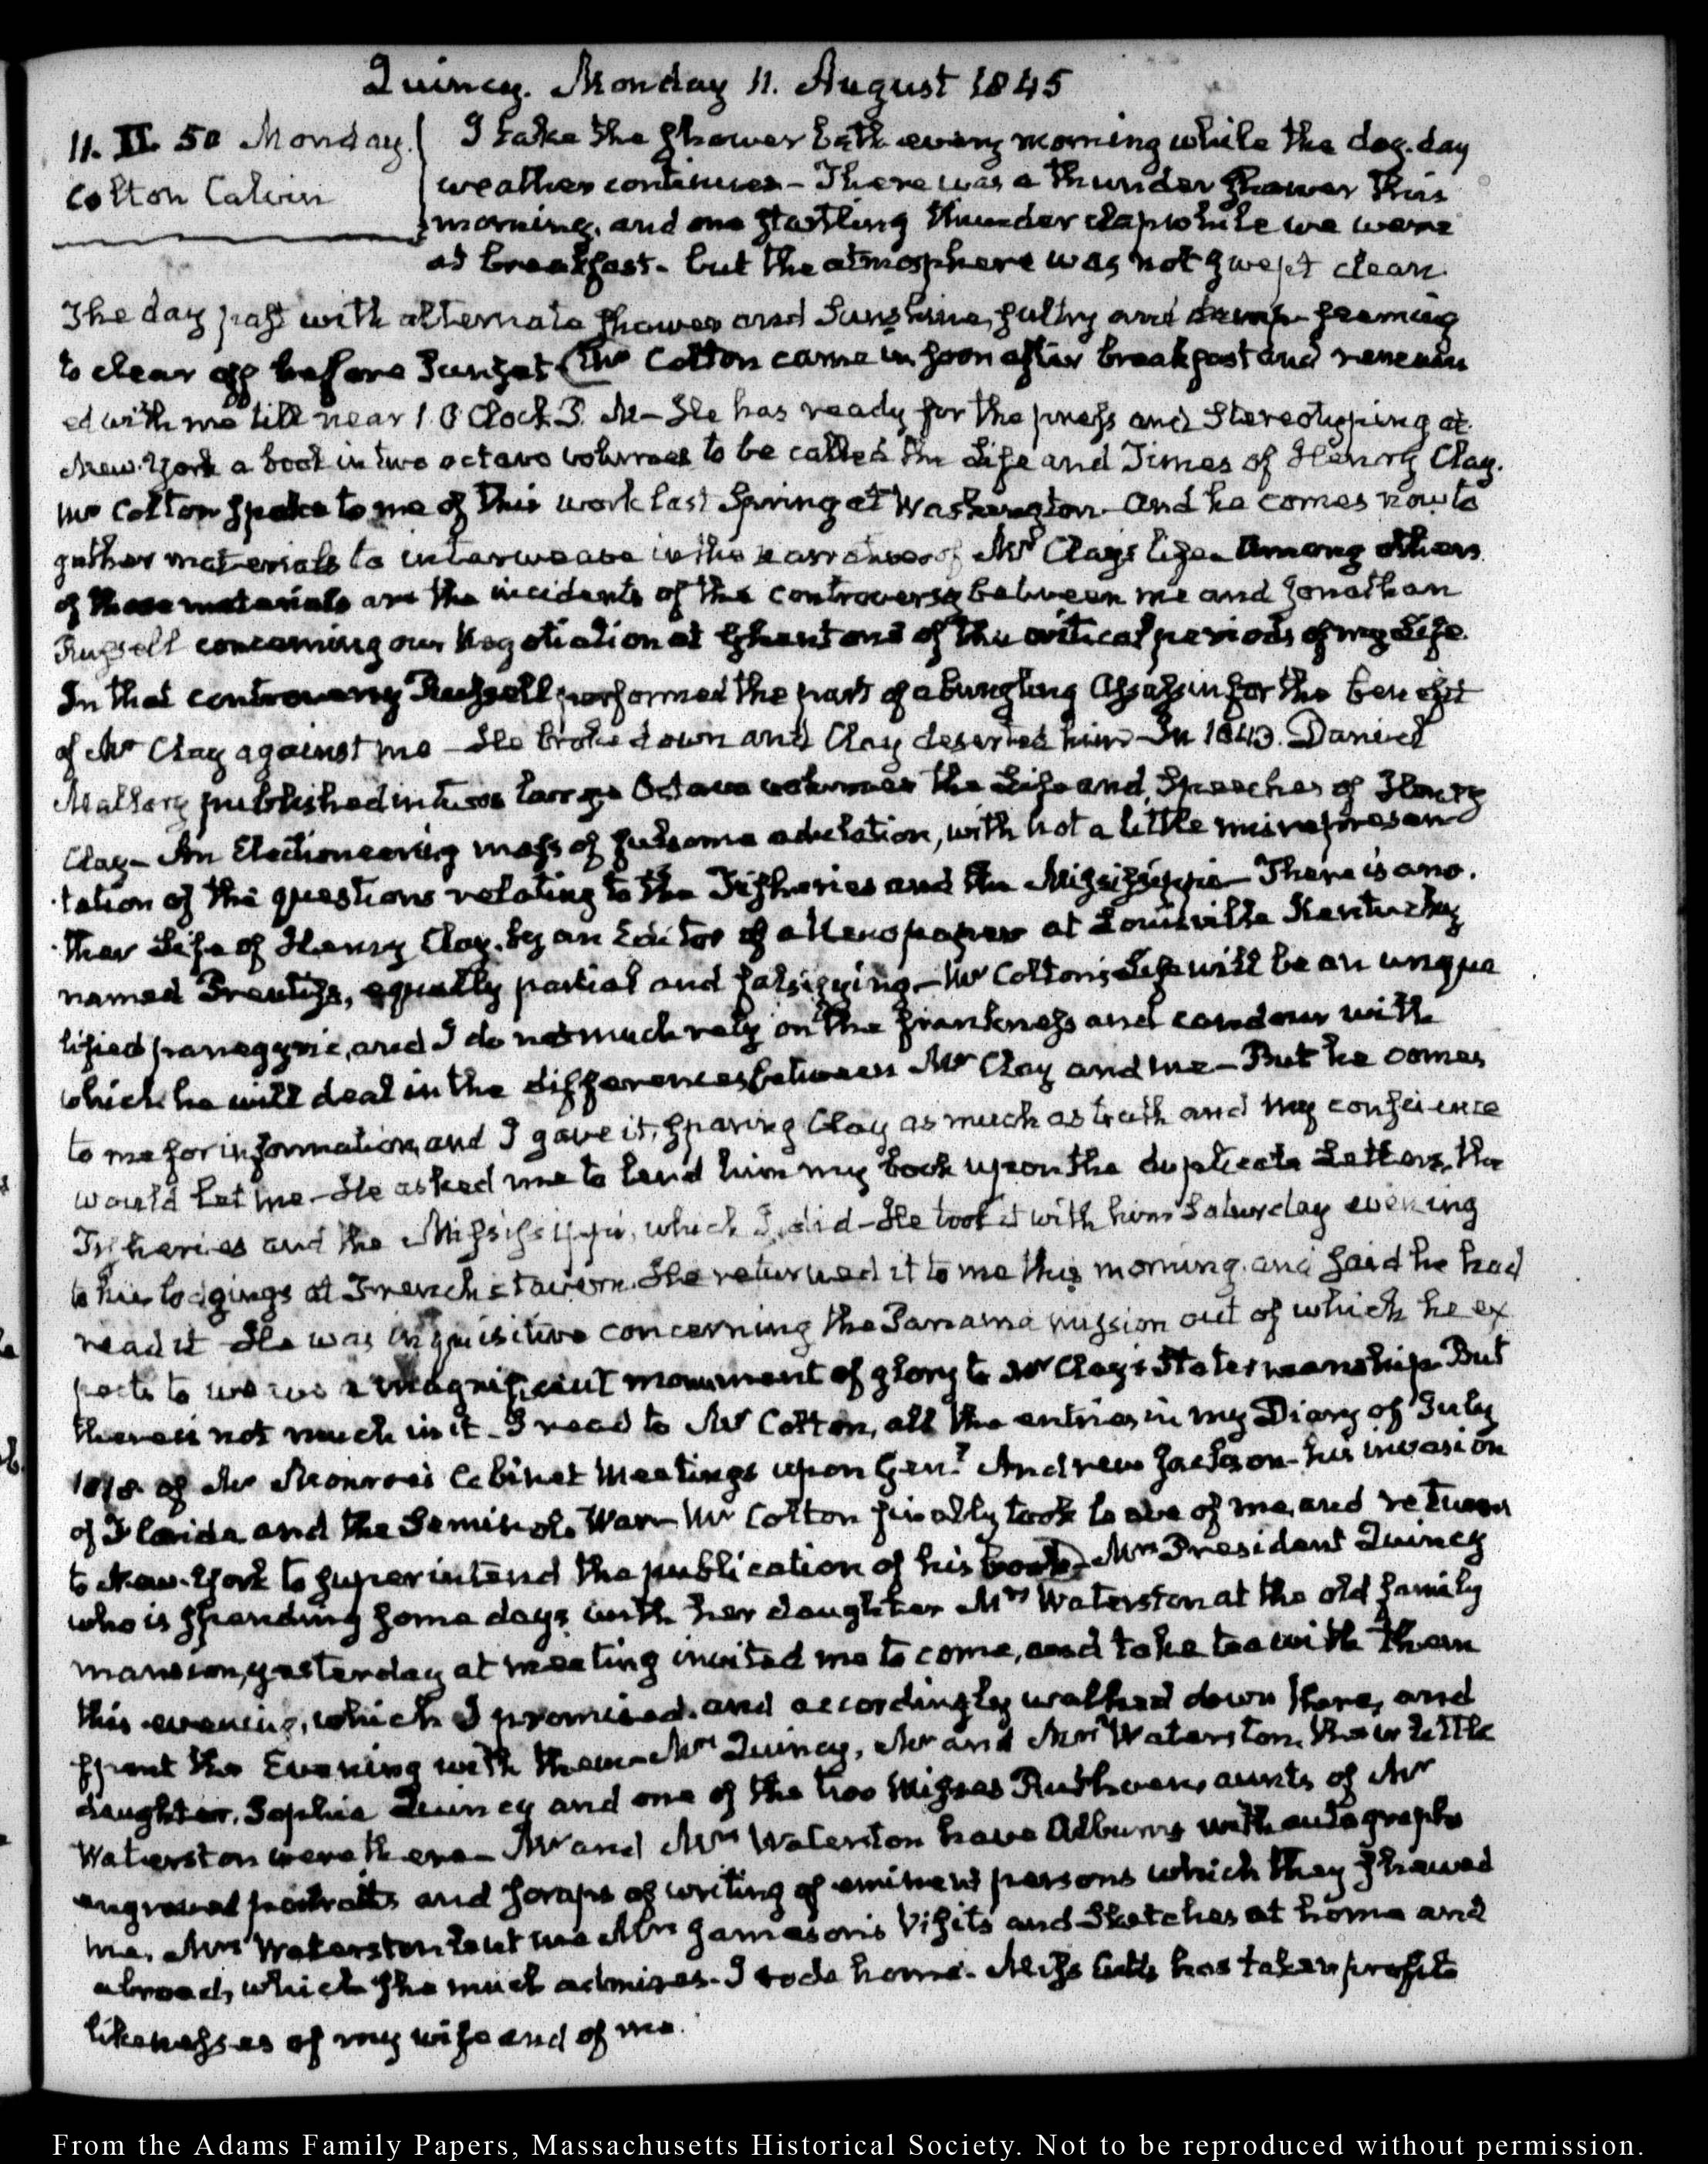 Quincy. Monday 11. August 1845
11. II. 50 Monday.
Colton Calvin
I take the shower bath every morning while the dog-day
weather continues - There was a thunder shower this
morning, and one startling thunder clap while we were
at breakfast - but the atmosphere was not swept clean.
The day past with alternate shower and Sunshine, sultry and damp seeming
to clear off before Sunset - (Mr Colton came in soon after breakfast and remain
ed with me till near 1. O Clock P. M - He has ready for the press and Stereotyping at
New-York a book in two octavo volumes to be called the Life and Times of Henry Clay.
Mr Colton spoke to me of this work last Spring at Washington - and he comes now to
gather materials to interweave in the narrative of Mr Clay's life - Among others
of these materials are the incidents of the controversy between me and Jonathan
Russell concerning our Negotiation at Ghent one of the critical periods of my Life.
In that controversy Russell performed the part of a bungling Assassin for the benefit
of Mr Clay against me - He broke down and Clay deserted him - In 1843. Daniel
Mallory published in two large Octavo volumes the Life and Speeches of Henry
Clay - An Electioneering mass of fulsome adulation, with not a little misrepresen
tation of the questions relating to the Fisheries and the Mississippi - There is ano-
ther Life of Henry Clay, by an Editor of a Newspaper at Louisville Kentucky
named Prentiss, equally partial and falsifying - Mr Colton's Life will be an unqua
lified panegyric, and I do not much rely on the frankness and candour with
which he will deal in the differences between Mr Clay and me - But he comes
to me for information, and I gave it, sparing Clay as much as truth and my conscience
would let me - He asked me to lend him my book upon the duplicate Letters, the
Fisheries and the Mississippi, which I did - He took it with him Saturday evening
to his lodgings at French's tavern. He returned it to me this morning, and said he had
read it - He was inquisitive concerning the Panama mission out of which he ex
pects to weave a magnificent monument of glory to Mr Clay's Statesmanship - But
there is not much in it - I read to Mr Colton, all the entries in my Diary of July
1818 of Mr Monroe's Cabinet Meetings upon Genl Andrew Jackson - his invasion
of Florida and the Seminole War - Mr Colton finally took leave of me, and returns
to New-York to superintend the publication of his book) - Mrs President Quincy
who is spending some days with her daughter Mrs Waterston at the old family
mansion, yesterday at meeting invited me to come, and take tea with them
this evening, which I promised, and accordingly walked down there, and
spent the Evening with them - Mrs Quincy, Mr and Mrs Waterston, their little
daughter, Sophia Quincy and one of the two Misses Ruthven, aunts of Mr
Waterston were there - Mr and Mrs Waterston have Albums with autographs
engraved portraits and scraps of writing of eminent persons which they shewed
me. Mrs Waterston lent me Mrs Jameson's Visits and Sketches at home and
abroad, which she much admires - I rode home - Miss has taken profile
likenesses of my wife and of me.
From the Adams Family Papers, Massachusetts Historical Society. Not to be reproduced without permission.